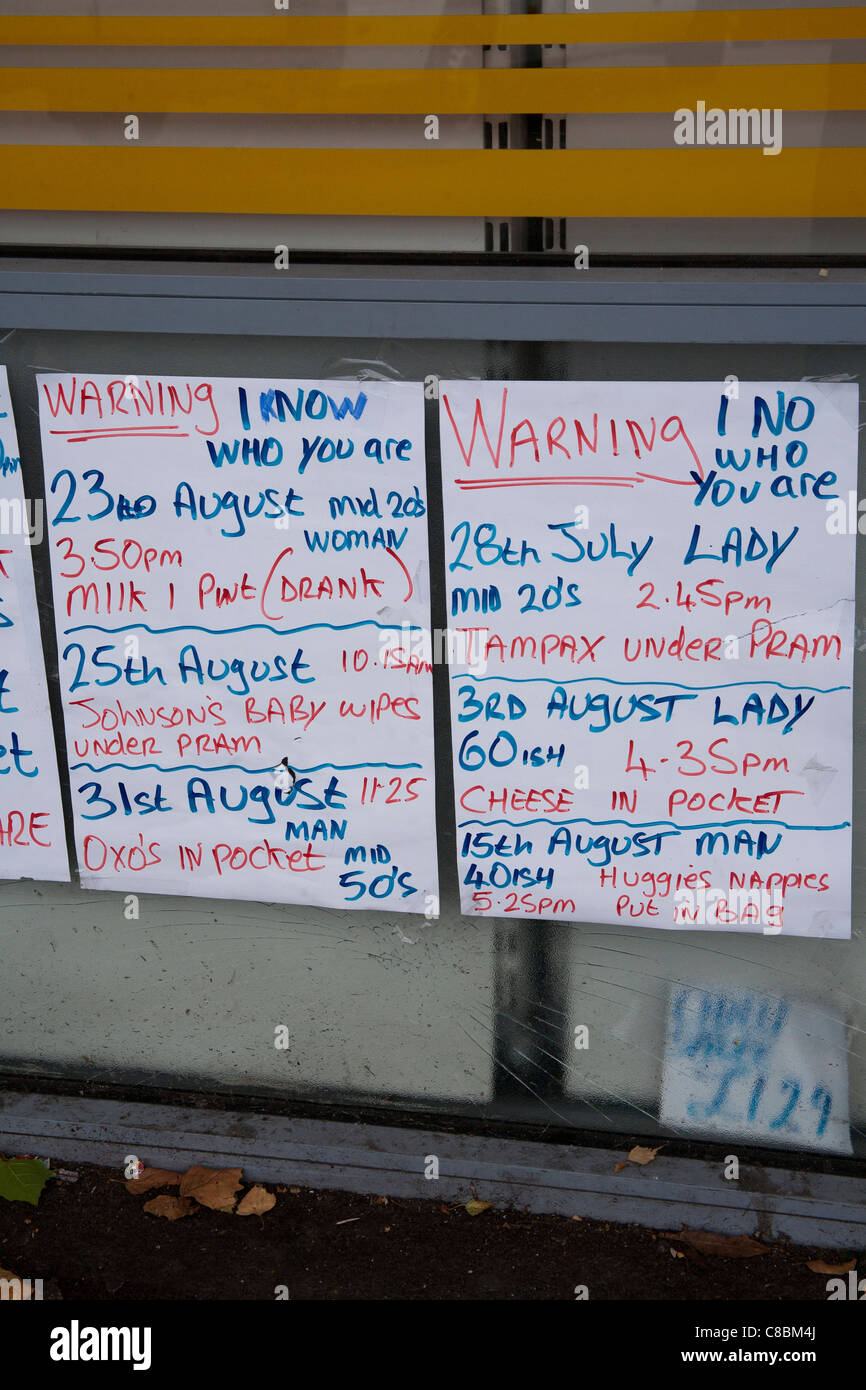 WARNING I KNOW
WHO YOU are
23RD August mid 20's
WOMAN
3.50pm
MIlK 1 PINt (DRANK)
25th August 10.15AM
JOHNSON'S BABY WIPES
UNDER PRAM
31st August 11.25
MAN
OXO'S IN POCKET MID
50's
WARNING I NO
WHO
YOU are
28th July LADY
MID 20's 2.45pm
TAMPAX UNDER PRAM
3RD August LADY
60ISH 4.35pm
CHEESE IN POCKET
15th August MAN
40ISH HUGGIES NAPPIES
5.25pm PUT IN BAG
pm
et
ARE
£129
a alamy stock photo
alamy
Image ID: C8BM4J
www.alamy.com